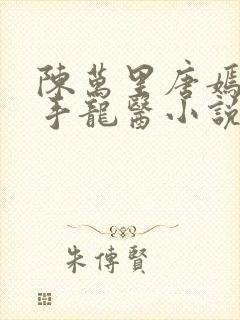 陳萬里唐嫣
手龍醫小説
朱傳賢